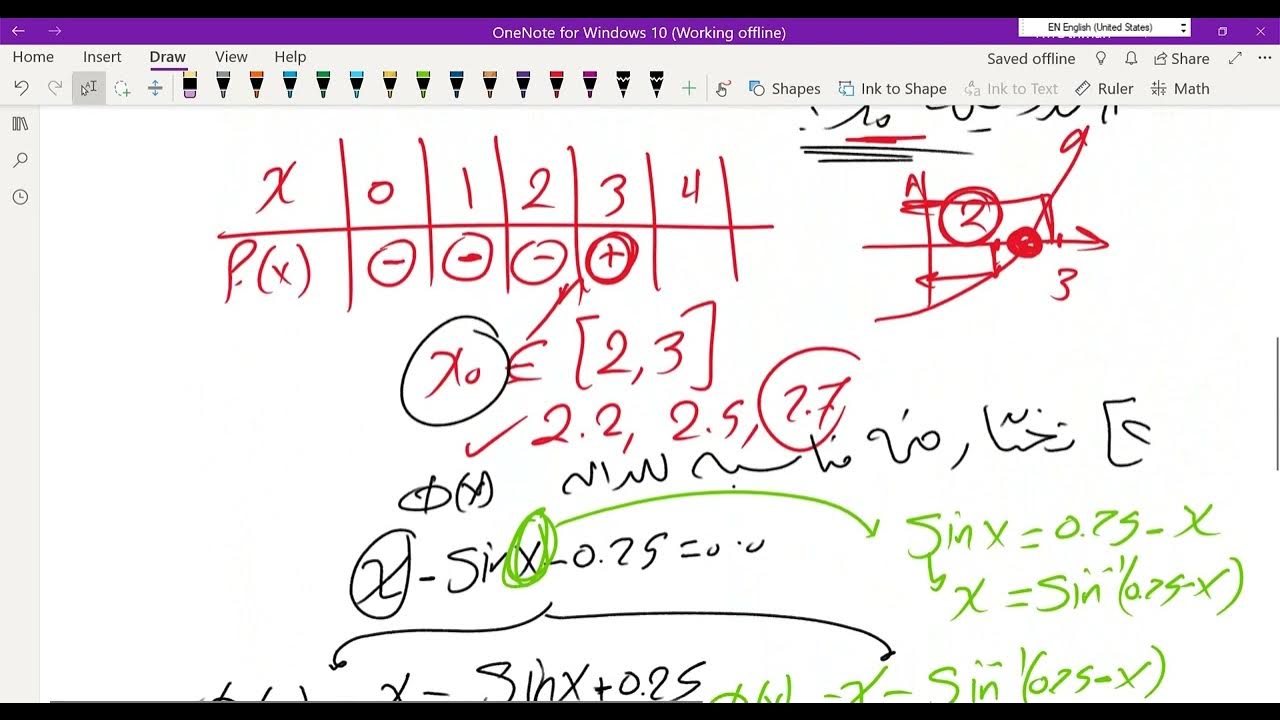 EN English (United States)
OneNote for Windows 10 (Working offline)
Home Insert Draw View Help
Saved offline Share
Shapes Ink to Shape Ink to Text Ruler Math
x 0 1 2 3 4
f(x) - - - +
A 2 3
x₀ ∈ [2,3]
2.2, 2.5, 2.7
نختار دالة مناسبة للدالة Φ(x)
x - Sinx - 0.25 = 0.0
Sinx = 0.25 - x
x = Sin⁻¹(0.25-x)
x = Sinx + 0.25
Φ(x) = x = Sin⁻¹(0.25-x)